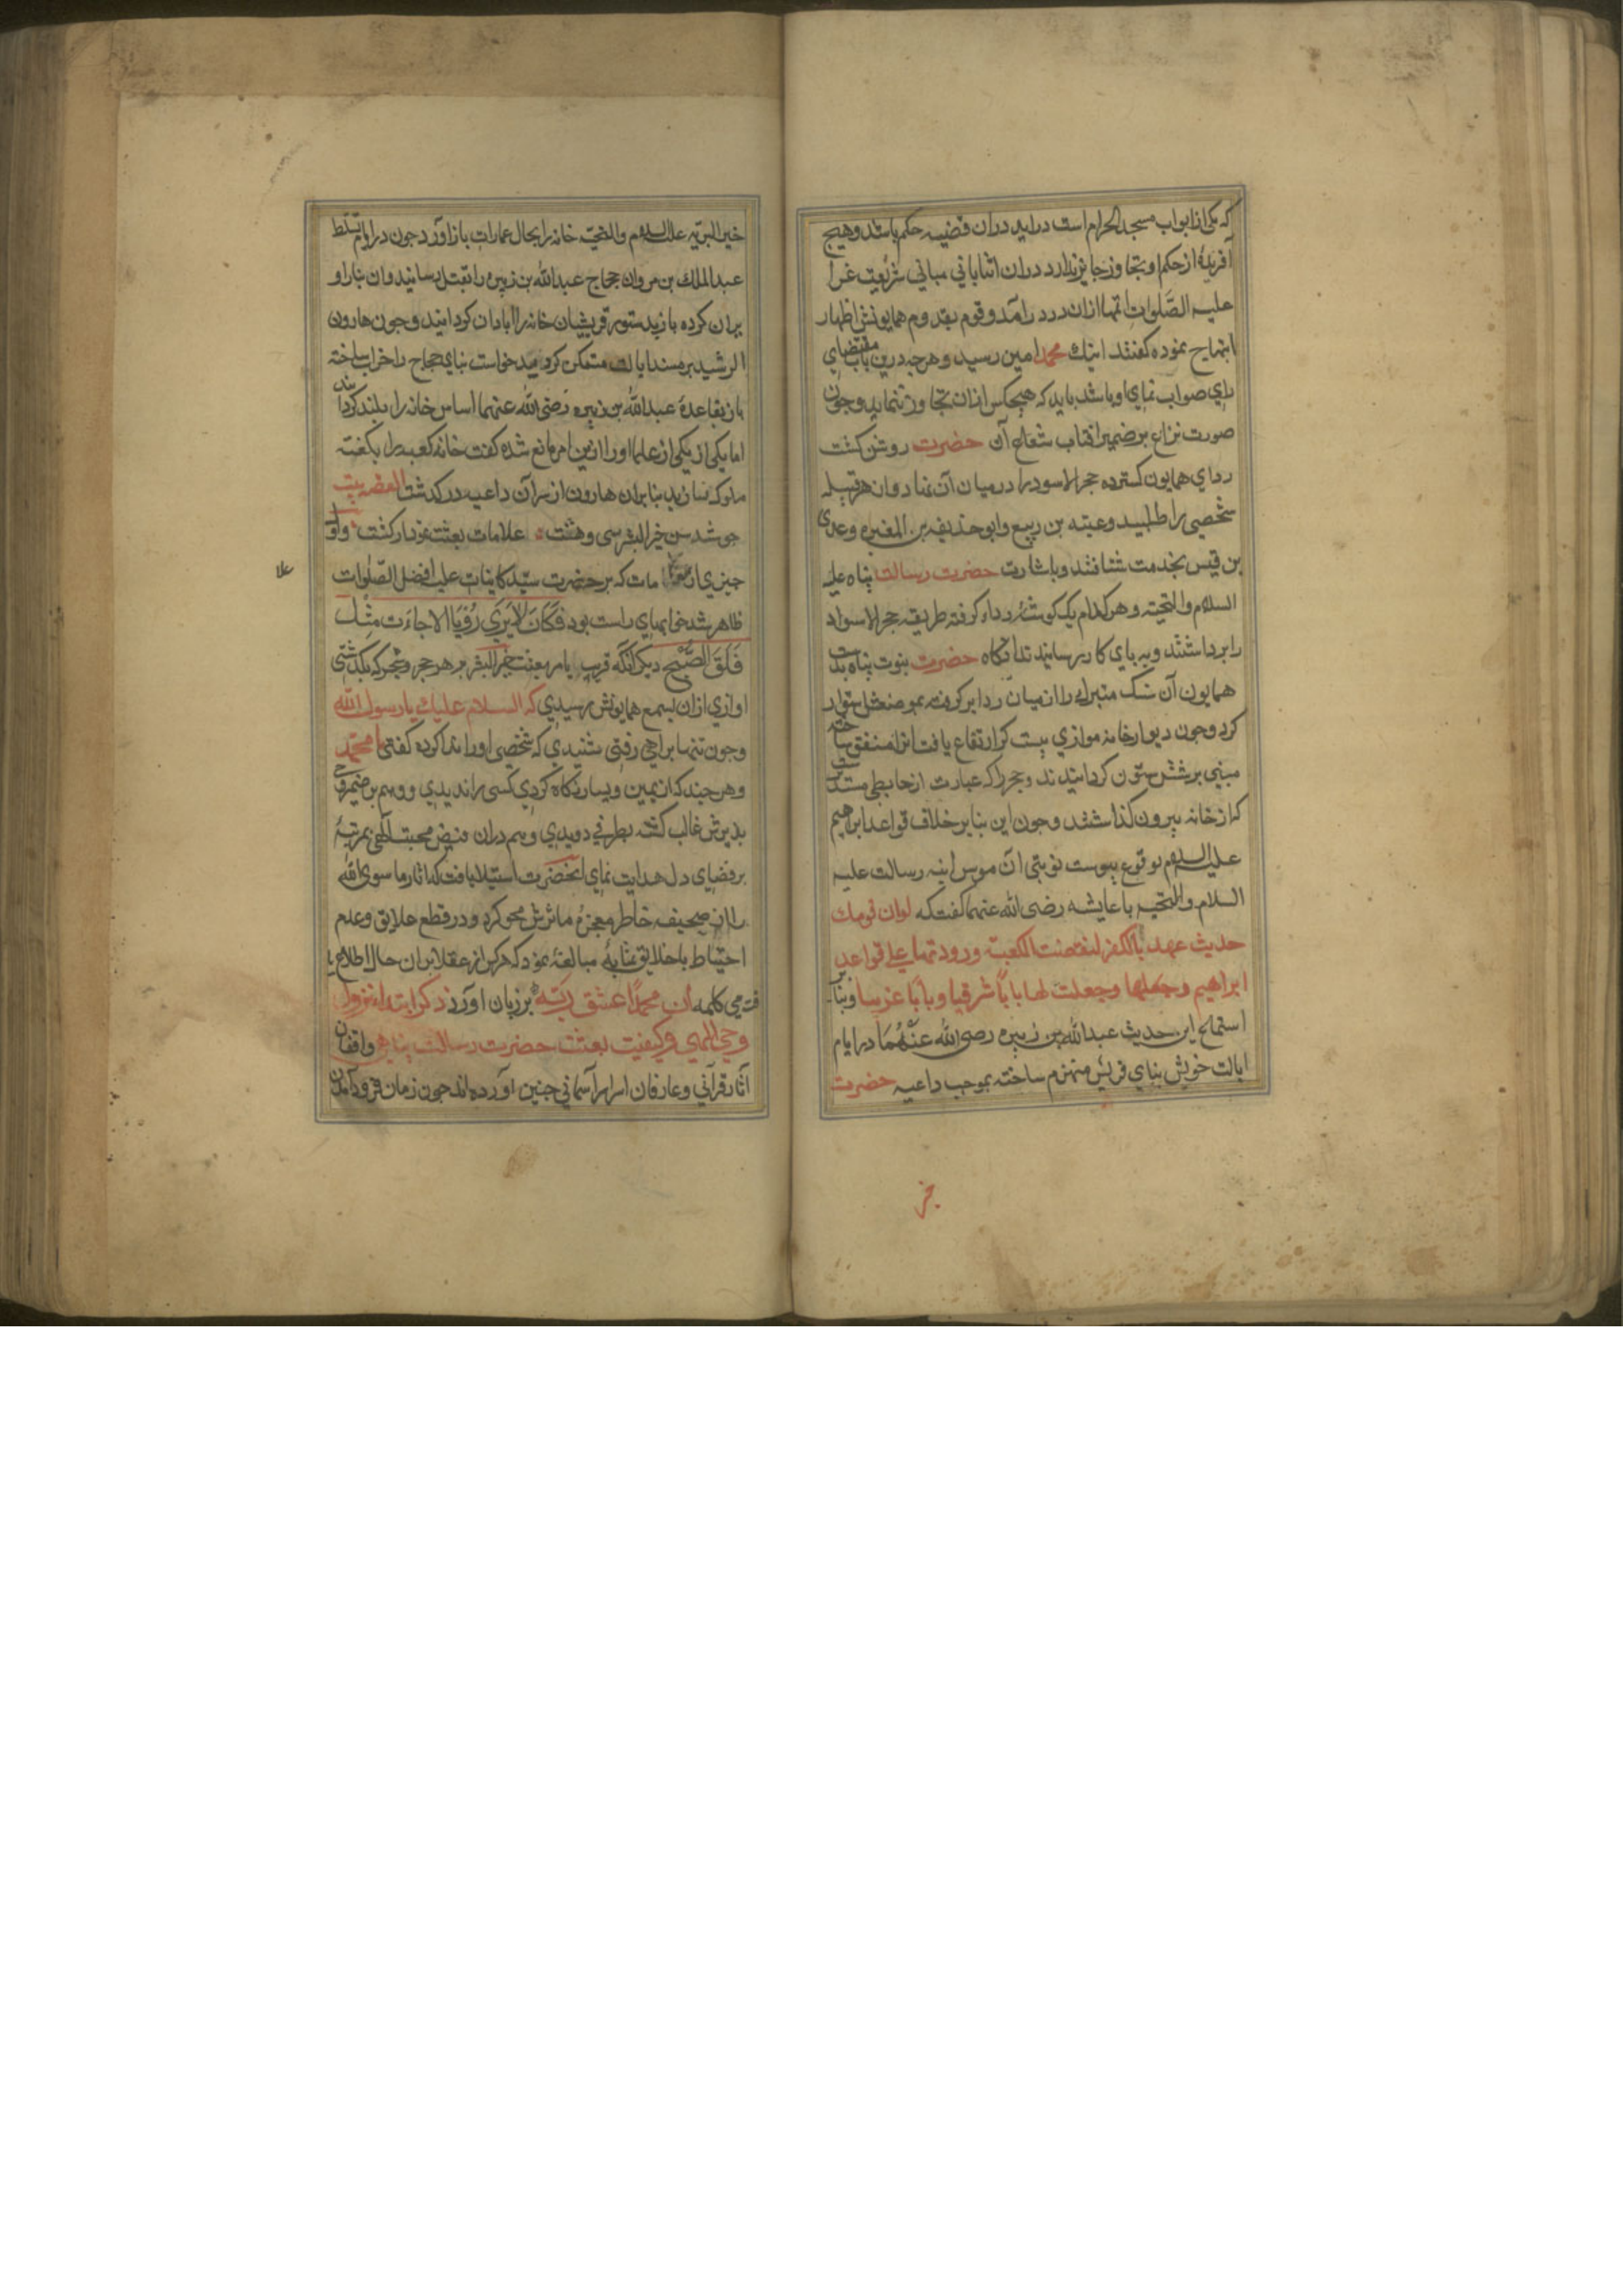 که یکی از ابواب مسجد الحرام است دراید دران قضیه حکم باشد و هیچ
آفریدۀ از حکم او تجاوز جایز ندارد دران اثنا بانی مبانی شریعت غرا
علیه الصَّلوات تنها ازان در درآمد و قوم بقدوم همایونش اظهار
ابتهاج نموده کفتند اینك محمد امین رسید و هرچه درین باب مقتضای
رای صواب نمای او باشد باید که هیچکس ازان تجاوز ننماید و چون
صورت نزاع بر ضمیر افتاب شعاع آن حضرت روشن کشت
ردای همایون کسترده حجر الاسود را درمیان آن نهاد و از هر قبیله
شخصی را طلبید و عتبه بن ربیع و ابو حذیفه بن المغیره و عدی
بن قیس بخدمت شتافتند و باشارت حضرت رسالت پناه علیه
السلام والتحیته و هر کدام یک کوشۀ رداء کرفته طریقه حجر الاسواد
را برداشتند و به پای کار رسانیدند انکاه حضرت نبوت پناه بدست
همایون آن سنک متبرك را از میان ردا بر کرفته بموضعش ستوار
کرد و چون دیوار خانه موازی بیست کز ارتفاع یافت انرا مسقف ساخته
مبنی بر شش ستون کردانیدند و حجر را که عبارت از حایطی مستدیرست
که از خانه بیرون کذاشتند و چون این بنا بر خلاف قواعد ابراهیم
علیه السلام بوقوع پیوست نوبتی آن موسس ابنیه رسالت علیه
السلام والتحیه با عایشه رضی الله عنهما کفت که لوان قومك
حدیث عهد بالکفر لنقضت الکعبة ورودتها علی قواعد
ابراهیم و جعلتها وجعلت لها باباً شرقیا وباباً غربیا و بنابر
استماع این حدیث عبدالله بن زبیره رضی الله عَنْهُمَا در ایام
ایالت خویش بنای قریش منهزم ساخته بموجب داعیه حضرت
خیر
خیر البریّه علیه السلام والتحیّه خانه را بحال عمارات باز اورد چون در ایام تسلّط
عبد الملك بن مروان حجاج عبدالله بن زبیره را بقتل رسانید و ان بنا را و
یران کرده باز بدستور قریشیان خانه را ابادان کردانید و چون هارون
الرشید بر مسند ایالت متمکن کردید خواست بنای حجاج را خراب ساخته
باز بقاعدۀ عبدالله بن زبیره رضی الله عنهما اساس خانه را بلند کرداند
اما یکی از یکی از علما او را ازین امر مانع شده کفت خانه کعبه را بکفته
ملوک نسازید بنابران هارون از سر آن داعیه در کذشت القصه بیت
چو شد سن خیر البشر سی و هشت علامات بعثت نمودار کشت و او
چیزی از مقدمات که بر حضرت سیّد کاینات علیه افضل الصّلوات
علا
ظاهر شد خوابهای راست بود فَکَانَ لایَرَی رُؤیَا الا جاءَت مِثْل
فَلَقَ الصُّبْحِ دیکر انکه قریب بامر بعثت خیر البشر بر هر حجر و شجر که بکذشتی
اوازی ازان بسمع همایونش رسیدی که السلام علیك یا رسول الله
و چون تنها براهی رفتی شنیدی که شخصی او را ندا کرده کفتی یا محمّد
و هر چند که از یمین و یسار نکاه کردی کسی را ندیدی و وهم بر ضمیر وحی
پذیرش غالب کشته بطرفی دویدی و هم دران فیض محبت الهی بمرتبۀ
بر فضای دل هدایت نمای انحضرت استیلا یافت که اثار ما سوی الله
را از صحیفه خاطر معجزه ماثرش محو کرد و در قطع علایق و عدم
احتیاط با خلایق بمثابۀ مبالغۀ نمود که هر کس از عقلا بر ان حال اطلاع یا
فت می کلمه ان محمّدًا عشق ربّه بر زبان اورد ذکر ابتداء نزول
وحی الهی و کیفیت بعثت حضرت رسالت پناهی واقفان
آثار قرآنی و عارفان اسرار آسمانی چنین آورده اند چون زمان فرود آمدن